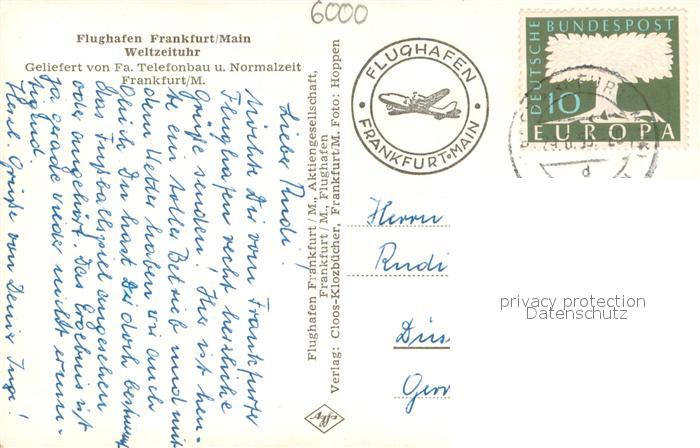 6000
Flughafen Frankfurt/Main
Weltzeituhr
Geliefert von Fa. Telefonbau u. Normalzeit
Frankfurt/M.
Lieber Rudi!
Möchte Dir vom Frankfurter
Flughafen recht herzliche
Grüße senden! Hier ist heu-
te ein toller Betrieb und mit
dem Wetter haben wir auch
Glück. Du hast Dir doch bestimmt
das Fußballspiel angesehen
oder angehört. Das Ergebnis ist
ja gerade wieder nicht ermu-
tigend.
Herzl. Grüße von Deiner Inge!
Flughafen Frankfurt/M., Aktiengesellschaft,
Frankfurt/M., Flughafen
Verlag: Cloos-Klozbücher, Frankfurt/M. Foto: Hoppen
Agfa
FLUGHAFEN
FRANKFURT·MAIN
DEUTSCHE BUNDESPOST
10
EUROPA
d
Herrn
Rudi
Düs
Gerr
privacy protection
Datenschutz